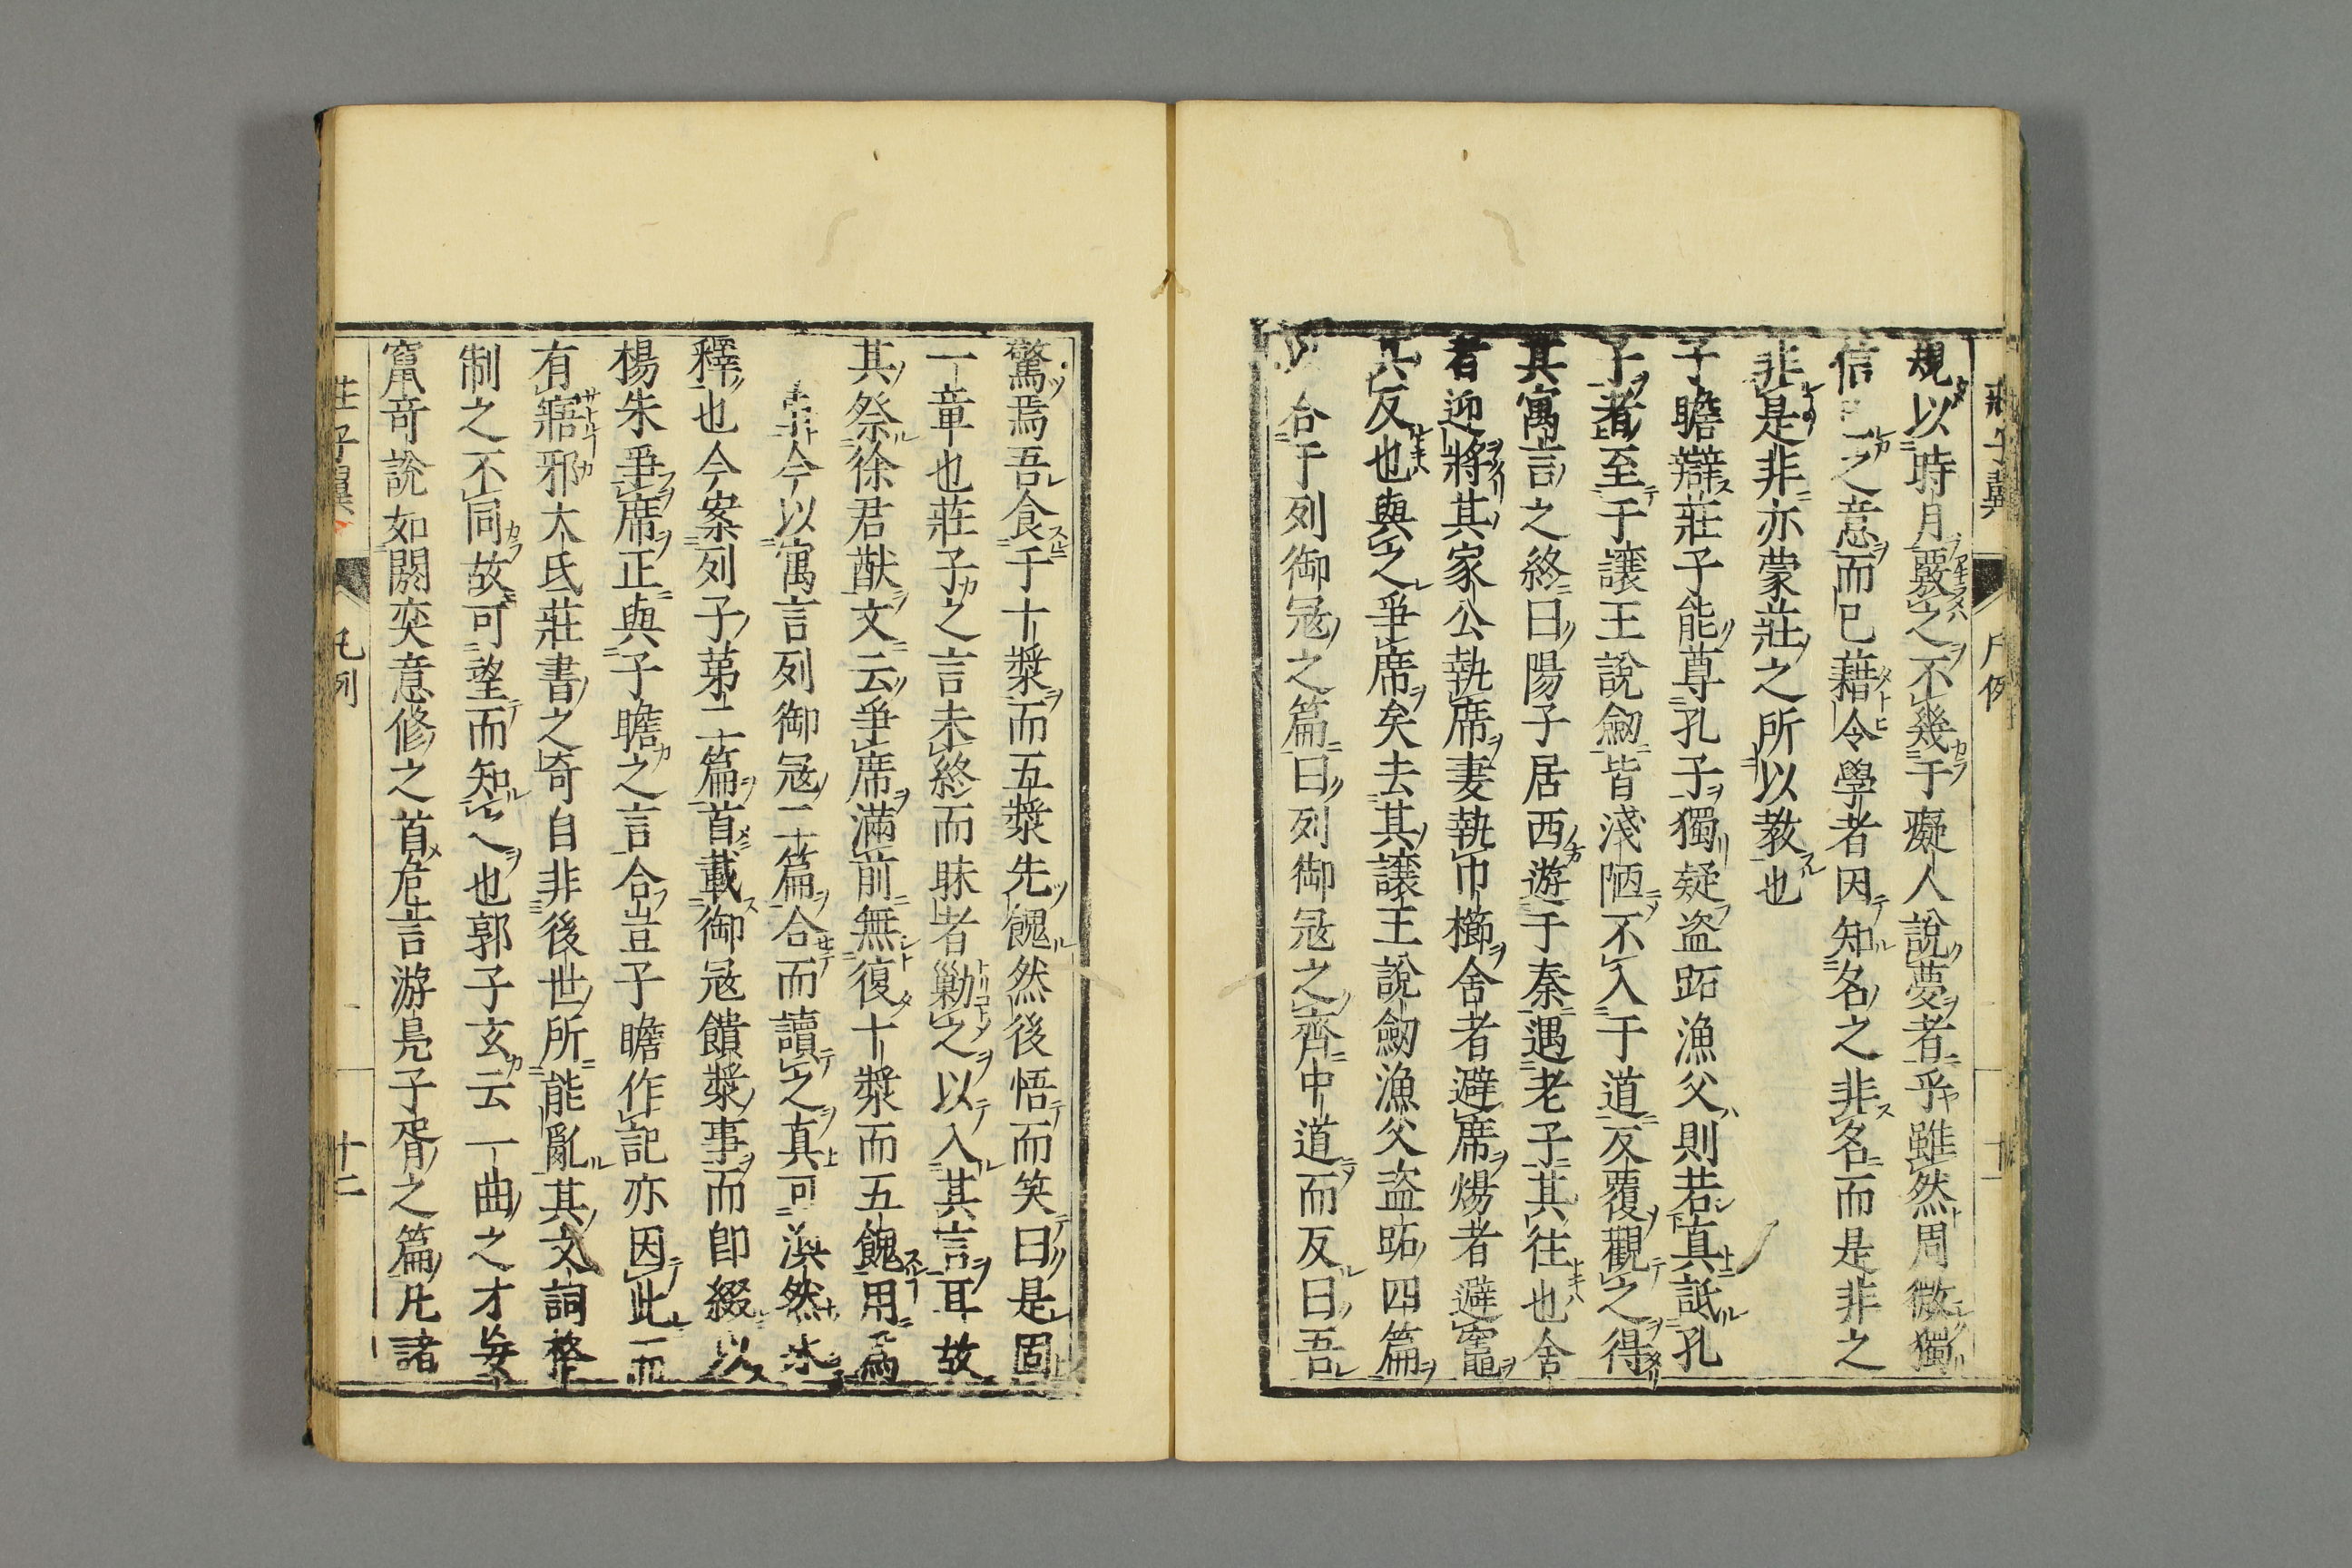 規以時月覈之不幾于癡人說夢者乎雖然周微獨
信之意而已藉令學者因知名之非名而是非之
非是非亦蒙莊之所以教也
子瞻辯莊子能尊孔子獨疑盜跖漁父則若真詆孔
子者至于讓王說劒皆淺陋不入于道反覆觀之得
其寓言之終曰陽子居西遊于秦遇老子其往也舍
者迎將其家公執席妻執巾櫛舍者避席煬者避竈
其反也與之爭席矣去其讓王說劒漁父盜跖四篇
以合于列御冦之篇曰列御冦之齊中道而反曰吾
驚焉吾食于十漿而五漿先餽然後悟而笑曰是固
一章也莊子之言未終而昧者勦之以入其言耳故
其祭徐君猷文云爭席滿前無復十漿而五餽用爲
今以寓言列御冦二篇合而讀之真可渙然冰
釋也今案列子第二篇首載御冦饋漿事而卽綴以
楊朱爭席正與子瞻之言合豈子瞻作記亦因此而
有寤邪大氐莊書之奇自非後世所能亂其文詞格
制之不同故可望而知也郭子玄云一曲之才妄
竄奇說如閼奕意修之首危言游鳧子胥之篇凡諸
莊子翼
凡例
十二